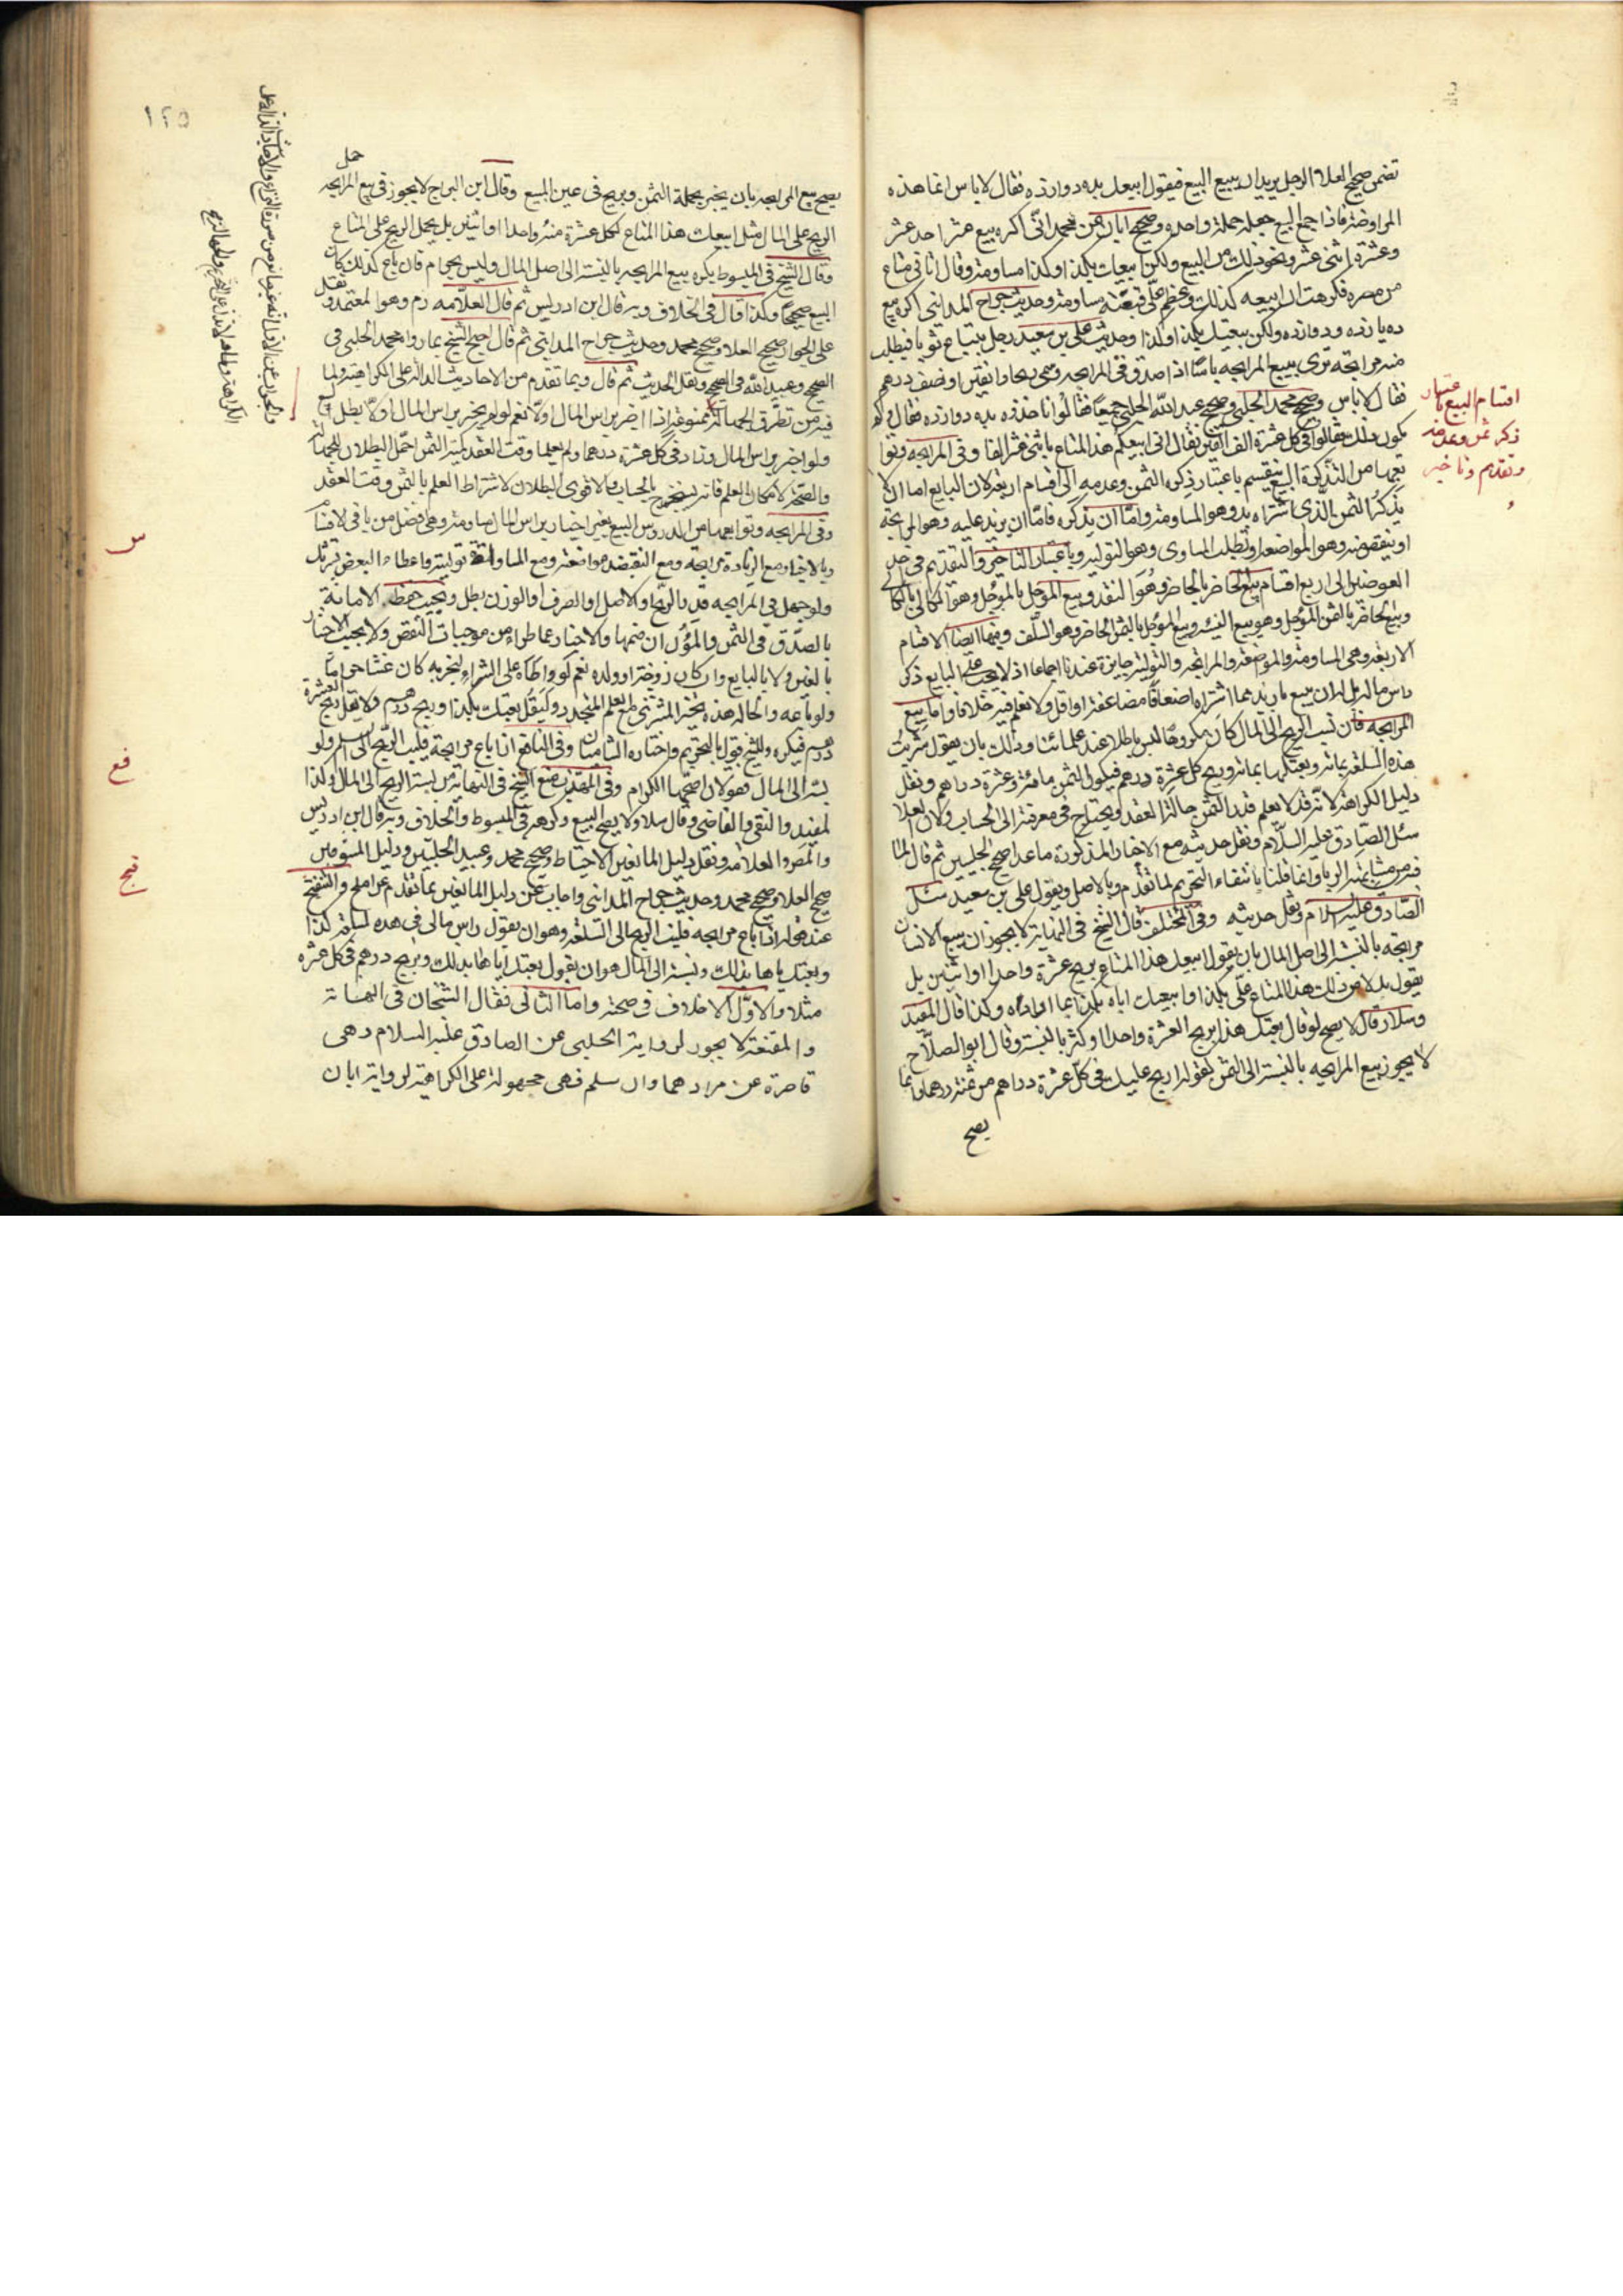 تضمن صحيح العلا الرجل يريد ان يبيع البيع فيقول ابيعك بده دوازده فقال لا باس انما هذه
المراوضة فاذا جمع البيع جعله جملة واحده وصحيح ابان عن محمد انى اكره بيع عشر احد عشر
وعشرة اثنى عشر ونحو ذلك من البيع ولكن ابيعك بكذا وكذا مساومة وقال اتانى متاع
من مصر فكرهت ان ابيعه كذلك وعظم على فبعته مساومة وحديث جراح المداينى اكره بيع
ده يازده وده دوازده ولكن بعتك بكذا وكذا وحديث على بن سعيد رجل يبتاع ثوبا فيطلب
منه مرابحة ترى ببيع المرابحه باسا اذا صدق فى المرابحه وسمى ربحا دانقين او نصف درهم
فقال لا باس وصحيح محمد الحلبى وصحيح عبيد الله الحلبى جميعا فقالوا ناخذه بده دوازده فقال لهم
يكون ذلك فقالوا فى كل عشرة الف الفين فقال انى ابيعكم هذا المتاع باثنى عشر الفا وفى المرابحه وتوا
بعها من التذكرة البيع ينقسم باعتبار ذكر الثمن وعدمه الى اقسام اربعة لان البايع اما ان لا
يذكر الثمن الذى اشتراه به وهو المساومة واما ان يذكره فاما ان يزيد عليه وهو المرابحة
او ينقص منه وهو المواضعه او يطلب المساوى وهو التوليه وباعتبار التاخير والتقديم فى احد
العوضين الى اربع اقسام بيع الحاضر بالحاضر وهو النقد وبيع المؤجل بالمؤجل وهو الكالى بالكالى
وبيع الحاضر بالثمن المؤجل وهو بيع النسيه وبيع المؤجل بالثمن الحاضر وهو السلف وفيها ايضا الاقسام
الاربعة وهى المساومة والمواضعة والمرابحه والتولية جايزة عندنا اجماعا اذ لا يجب على البايع ذكر
راس ماله بل له ان يبيع بازيد مما اشتراه اضعافا مضاعفة او اقل ولا نعلم فيه خلافا واما بيع
المرابحه فان نسب الربح الى المال كان مكروها ليس باطلا عند علمائنا وذلك بان يقول اشتريت
هذه السلعة بمائة وبعتكها بمائة وربح كل عشرة درهم فيكون الثمن مائة وعشرة دراهم ونقل
دليل الكراهة لانه قد لا يعلم قدر الثمن حالة العقد ويحتاج فى معرفته الى الحساب ولان العلا
سئل الصادق عليه السلام ونقل حديثه مع الاخبار المذكورة ما عدا صحيح الحلبيين ثم قال لما
فيه من مشابهة الربا وانما قلنا بانتفاء التحريم لما تقدم وبالاصل وبقول على بن سعيد سئل
الصادق عليه السلام ونقل حديثه وفى المختلف قال الشيخ فى النهاية لا يجوز ان يبيع الانسان
مرابحة بالنسبة الى اصل المال بان يقول ابيعك هذا المتاع بربح عشرة واحدا او اثنين بل
يقول بدلا من ذلك هذا المتاع على بكذا وابيعك اياه بكذا بما اراد وكذا قال المفيد
وسلار قال لا يصح لو قال بعتك هذا بربح العشرة واحدا او اكثر بالنسبة وقال ابو الصلاح
لا يجوز بيع المرابحه بالنسبة الى الثمن بقوله اربح عليك فى كل عشرة دراهم من ثمنه درهما وانما
يصح
اقسام البيع باعتبار
ذكر ثمن وعدمه
وتقديم وتاخير
١٢٥
يصح بيع المرابحه بان يخبر بجملة الثمن ويربح فى عين المبيع وقال ابن البراج لا يجوز فى بيع المرابحه
الربح على المال مثل ابيعك هذا المتاع لكل عشرة منه واحدا او اثنين بل يجعل الربح على المتاع
وقال الشيخ فى المبسوط يكره بيع المرابحه بالنسبة الى اصل المال وليس بحرام فان باع كذلك كان
البيع صحيحا وكذا قال فى الخلاف وبه قال ابن ادريس ثم قال العلامه ره وهو المعتمد ونقل
على الجواز صحيح العلا وصحيح محمد وحديث جراح المداينى ثم قال احتج الشيخ بما رواه محمد الحلبى فى
الصحيح وعبيد الله فى الصحيح ونقل الحديث ثم قال وبما تقدم من الاحاديث الدالة على الكراهية ولما
فيه من تطرق الجهالة
ولو اخبر براس المال وزاد فى كل عشرة درهما ولم يعلما وقت العقد كمية الثمن احتمل البطلان للجهالة
والصحة لامكان العلم فانه يستخرج بالحساب والاقوى البطلان لاشتراط العلم بالثمن وقت العقد
وفى المرابحه وتوابعها من الدروس البيع بغير اخبار براس المال مساومة وهى افضل من باقى الاقسام
وبالاخبار مع الزيادة مرابحة ومع النقيصه مواضعة ومع المساواة تولية واعطاء البعض تشريك
ولو جهل فى المرابحه قدر الربح او الاصل او الصرف او الوزن بطل ويجب حفظ الامانة
بالصدق فى الثمن والمؤن ان ضمها والاخبار عما طراء من موجبات النقص ولا يجب الاخبار
بالغبن ولا بالبايع وان كان زوجته او ولده نعم لو واطاه على الشراء ليخبر به كان غشا حراما
ولو باعه والحالة هذه تخير المشترى مع العلم المتجدد وليقل بعتك بكذا وربح درهم ولا يقل ربح العشرة
درهم فيكره وللشيخ قول بالتحريم واختاره الشاميان وفى النافع اذا باع مرابحة فلينسب الربح الى السلعة ولو
نسبه الى المال فقولان اصحهما الكراهة وفى المهذب منع الشيخ فى النهاية من نسبة الربح الى المال وكذا
المفيد والتقى والقاضى وقال سلار لا يصح البيع وكرهه فى المبسوط والخلاف وبه قال ابن ادريس
والمص والعلامة ونقل دليل المانعين الاحتياط وصحيح محمد وعبيد الحلبيين ودليل المسوغين
صحيح العلا وصحيح محمد وحديث جراح المداينى واجاب عن دليل المانعين بما تقدم
عند قوله اذا باع مرابحه فلينسب الربح الى السلعة وهو ان يقول راس مالى فى هذه السلعة كذا
وبعتك اياها بذلك ونسبته الى المال هو ان يقول بعتك اياها بذلك وبربح درهم فى كل عشرة
مثلا والاول لا خلاف فى صحته واما الثانى فقال الشيخان فى النهاية
والمقنعة لا يجوز لرواية الحلبى عن الصادق عليه السلام وهى
قاصرة عن مرادهما وان سلم فهى محمولة على الكراهية لرواية ابان